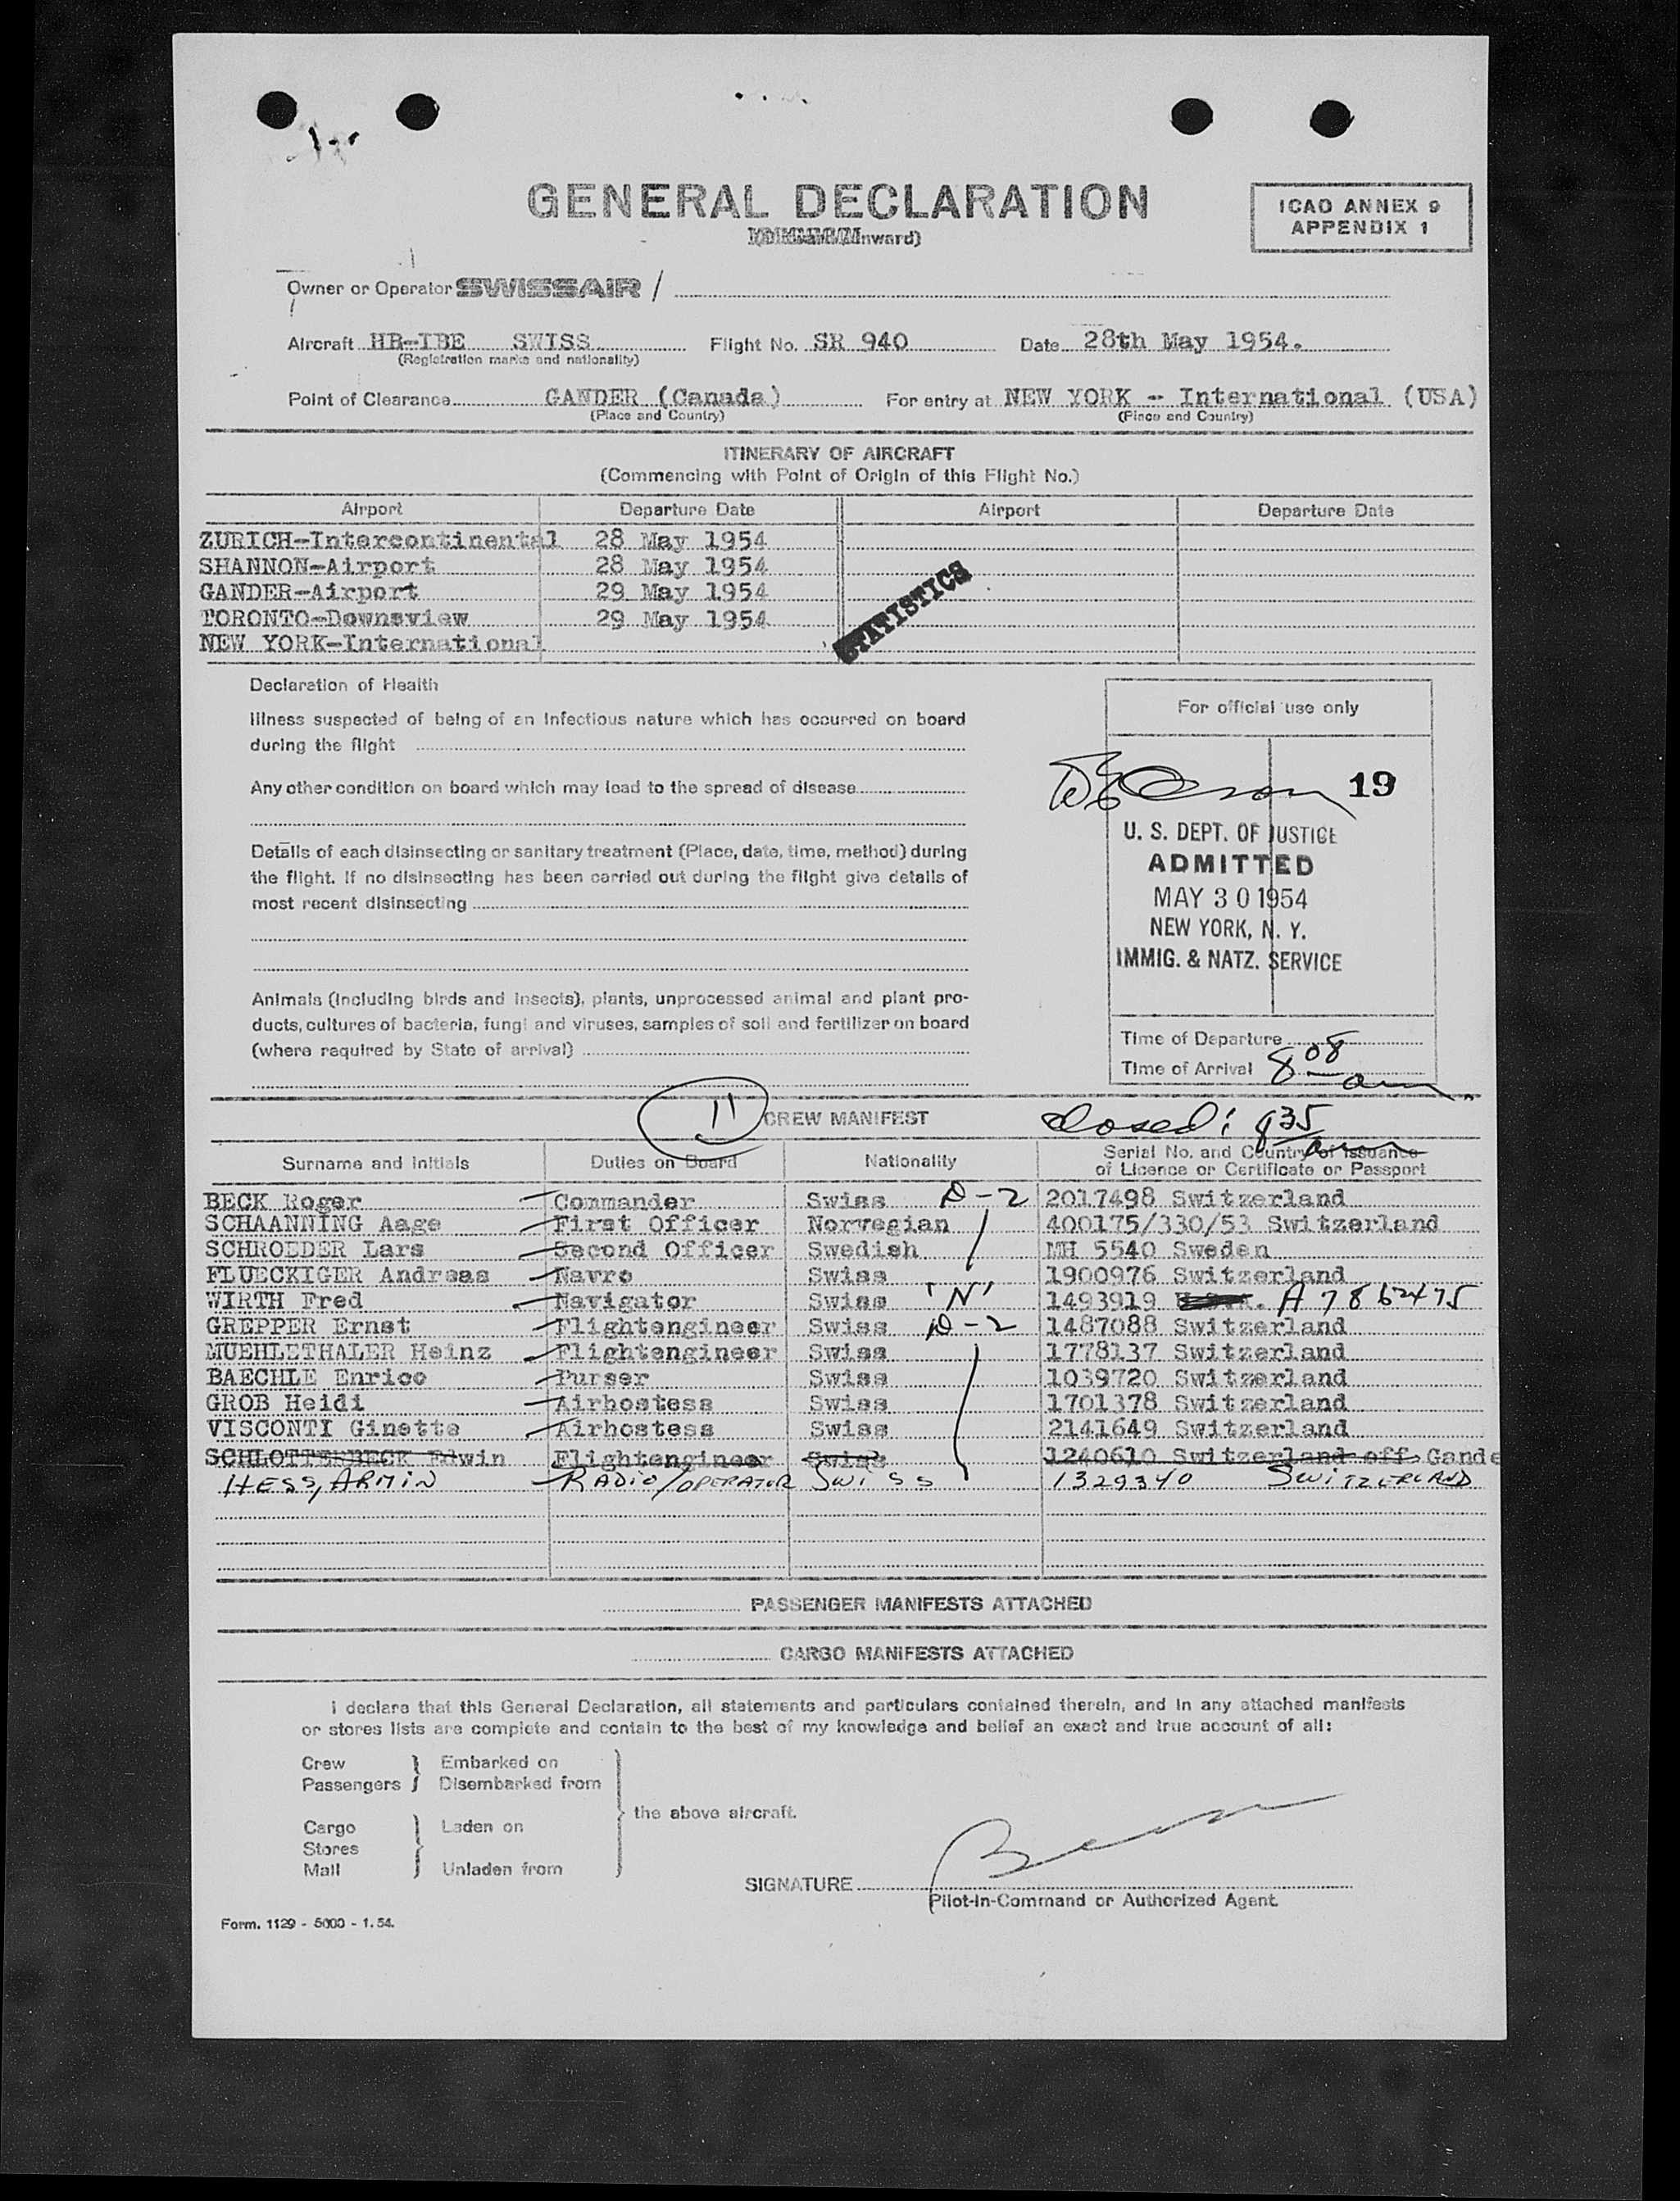 GENERAL DECLARATION
ICAO ANNEX 9
APPENDIX 1
Inward)
Owner or Operator SWISSAIR /
Aircraft HB-IBE SWISS Flight No. SR 940 Date 28th May 1954.
(Registration marks and nationality)
Point of Clearance GANDER (Canada) For entry at NEW YORK - International (USA)
(Place and Country) (Place and Country)
ITINERARY OF AIRCRAFT
(Commencing with Point of Origin of this Flight No.)
Airport Departure Date Airport Departure Date
ZURICH-Intercontinental 28 May 1954
SHANNON-Airport 28 May 1954
GANDER-Airport 29 May 1954
TORONTO-Downsview 29 May 1954
NEW YORK-International
STATISTICS
Declaration of Health
Illness suspected of being of an infectious nature which has occurred on board
during the flight
Any other condition on board which may lead to the spread of disease
Details of each disinsecting or sanitary treatment (Place, date, time, method) during
the flight. If no disinsecting has been carried out during the flight give details of
most recent disinsecting
Animals (including birds and insects), plants, unprocessed animal and plant pro-
ducts, cultures of bacteria, fungi and viruses, samples of soil and fertilizer on board
(where required by State of arrival)
For official use only
19
U. S. DEPT. OF JUSTICE
ADMITTED
MAY 30 1954
NEW YORK, N. Y.
IMMIG. & NATZ. SERVICE
Time of Departure
Time of Arrival 8 08 am
11 CREW MANIFEST
Closed: 835 am
Surname and initials Duties on Board Nationality Serial No. and Country of Issuance
of Licence or Certificate or Passport
BECK Roger Commander Swiss D-2 2017498 Switzerland
SCHAANNING Aage First Officer Norwegian 400175/330/53 Switzerland
SCHROEDER Lars Second Officer Swedish MH 5540 Sweden
FLUECKIGER Andreas Navro Swiss 1900976 Switzerland
WIRTH Fred Navigator Swiss 'N' 1493919 A 7862475
GREPPER Ernst Flightengineer Swiss D-2 1487088 Switzerland
MUEHLETHALER Heinz Flightengineer Swiss 1778137 Switzerland
BAECHLE Enrico Purser Swiss 1039720 Switzerland
GROB Heidi Airhostess Swiss 1701378 Switzerland
VISCONTI Ginette Airhostess Swiss 2141649 Switzerland
SCHLOTTERBECK Edwin Flightengineer Swiss 1240610 Switzerland off Gande
HESS, ARMIN RADIO/OPERATOR SWISS 1329340 SWITZERLAND
PASSENGER MANIFESTS ATTACHED
CARGO MANIFESTS ATTACHED
I declare that this General Declaration, all statements and particulars contained therein, and in any attached manifests
or stores lists are complete and contain to the best of my knowledge and belief an exact and true account of all:
Crew Embarked on
Passengers Disembarked from
the above aircraft.
Cargo Laden on
Stores
Mail Unladen from
SIGNATURE
Pilot-in-Command or Authorized Agent.
Form. 1129 - 5000 - 1. 54.